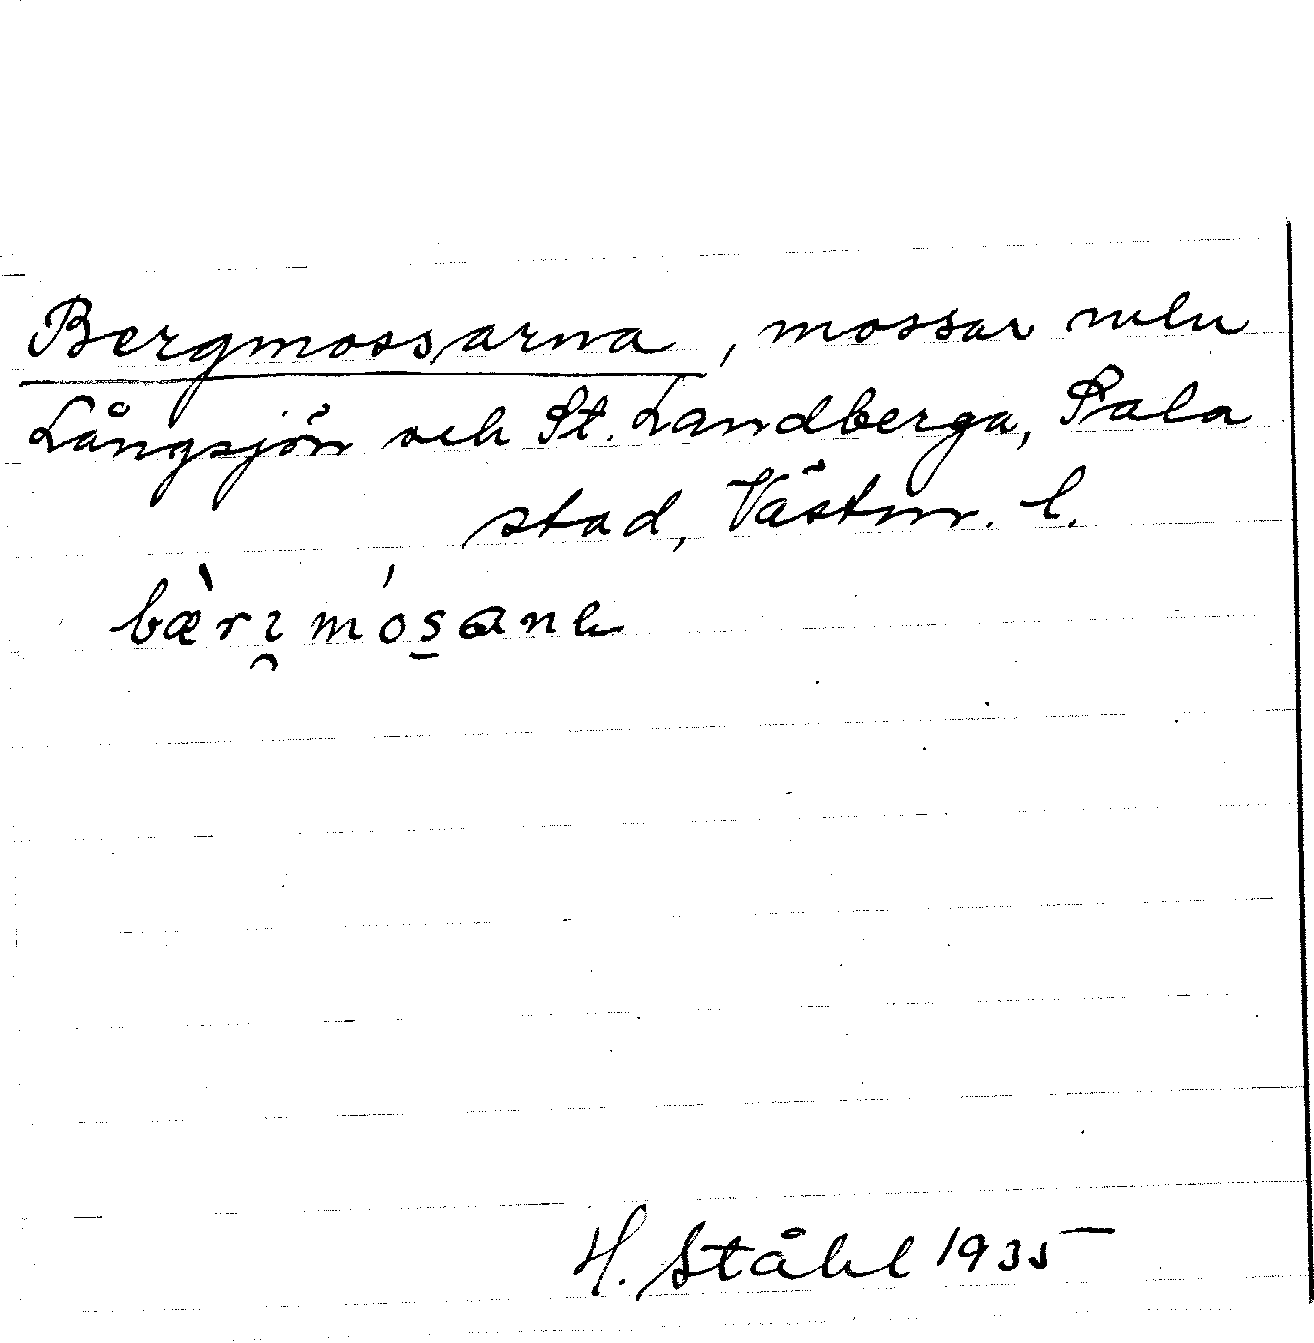 Bergmossarna, mossar mln
Långsjön och St. Landberga, Sala
stad, Västm. l.
bæ̀rɿ̯mósa̱nɐ
H. Ståhl 1935